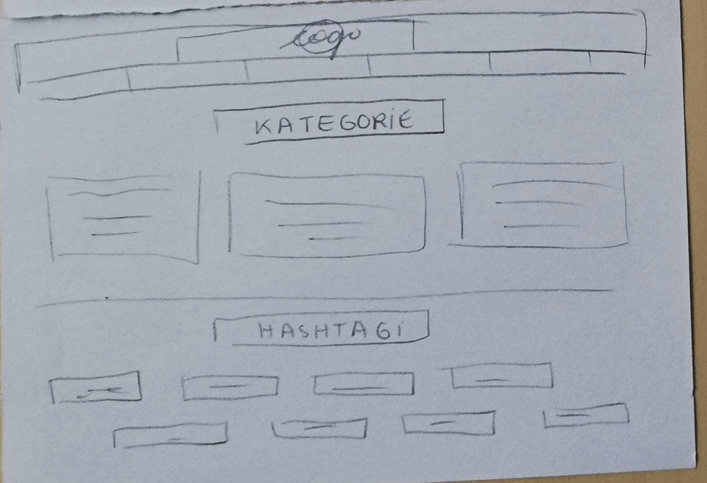 Logo
KATEGORIE
HASHTAGI